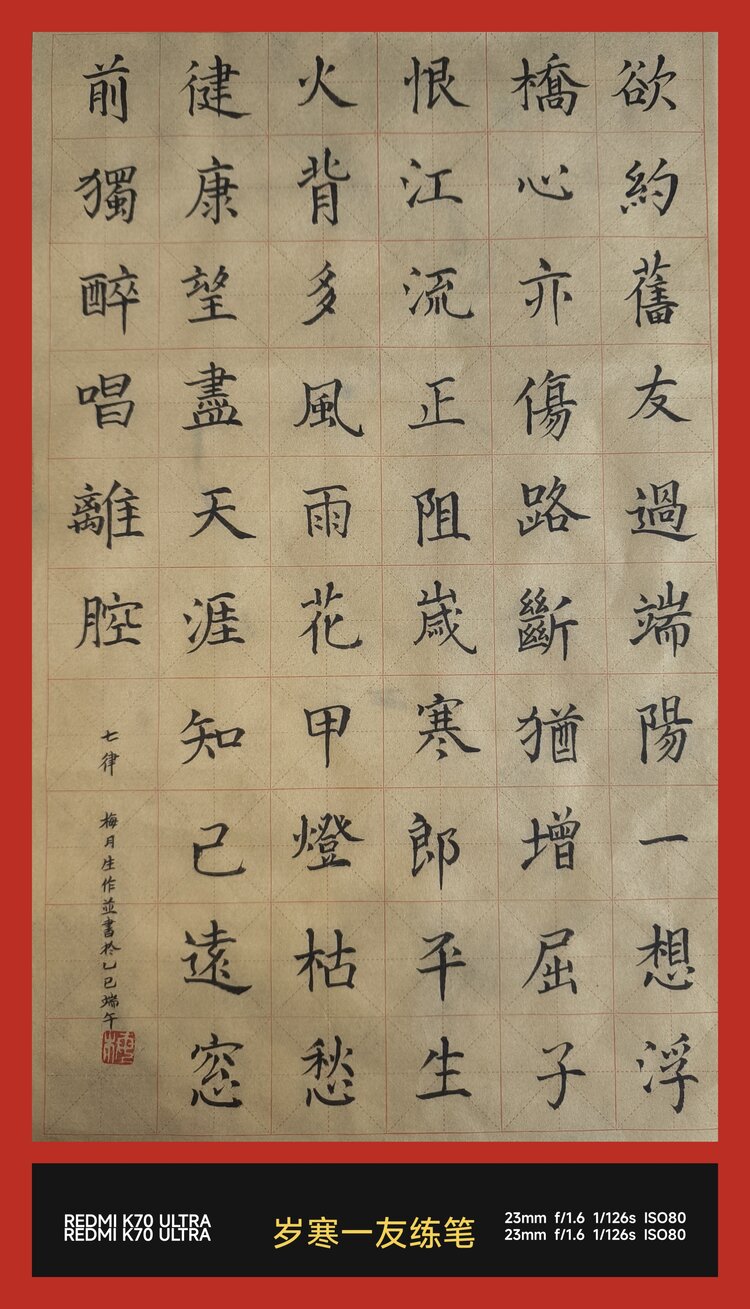 欲約舊友過端陽一想浮
橋心亦傷路斷猶增屈子
恨江流正阻歲寒郎平生
火背多風雨花甲燈枯愁
健康望盡天涯知己遠窓
前獨醉唱離腔
七律
梅月生作並書於乙巳端午
REDMI K70 ULTRA
REDMI K70 ULTRA
岁寒一友练笔
23mm f/1.6 1/126s ISO80
23mm f/1.6 1/126s ISO80